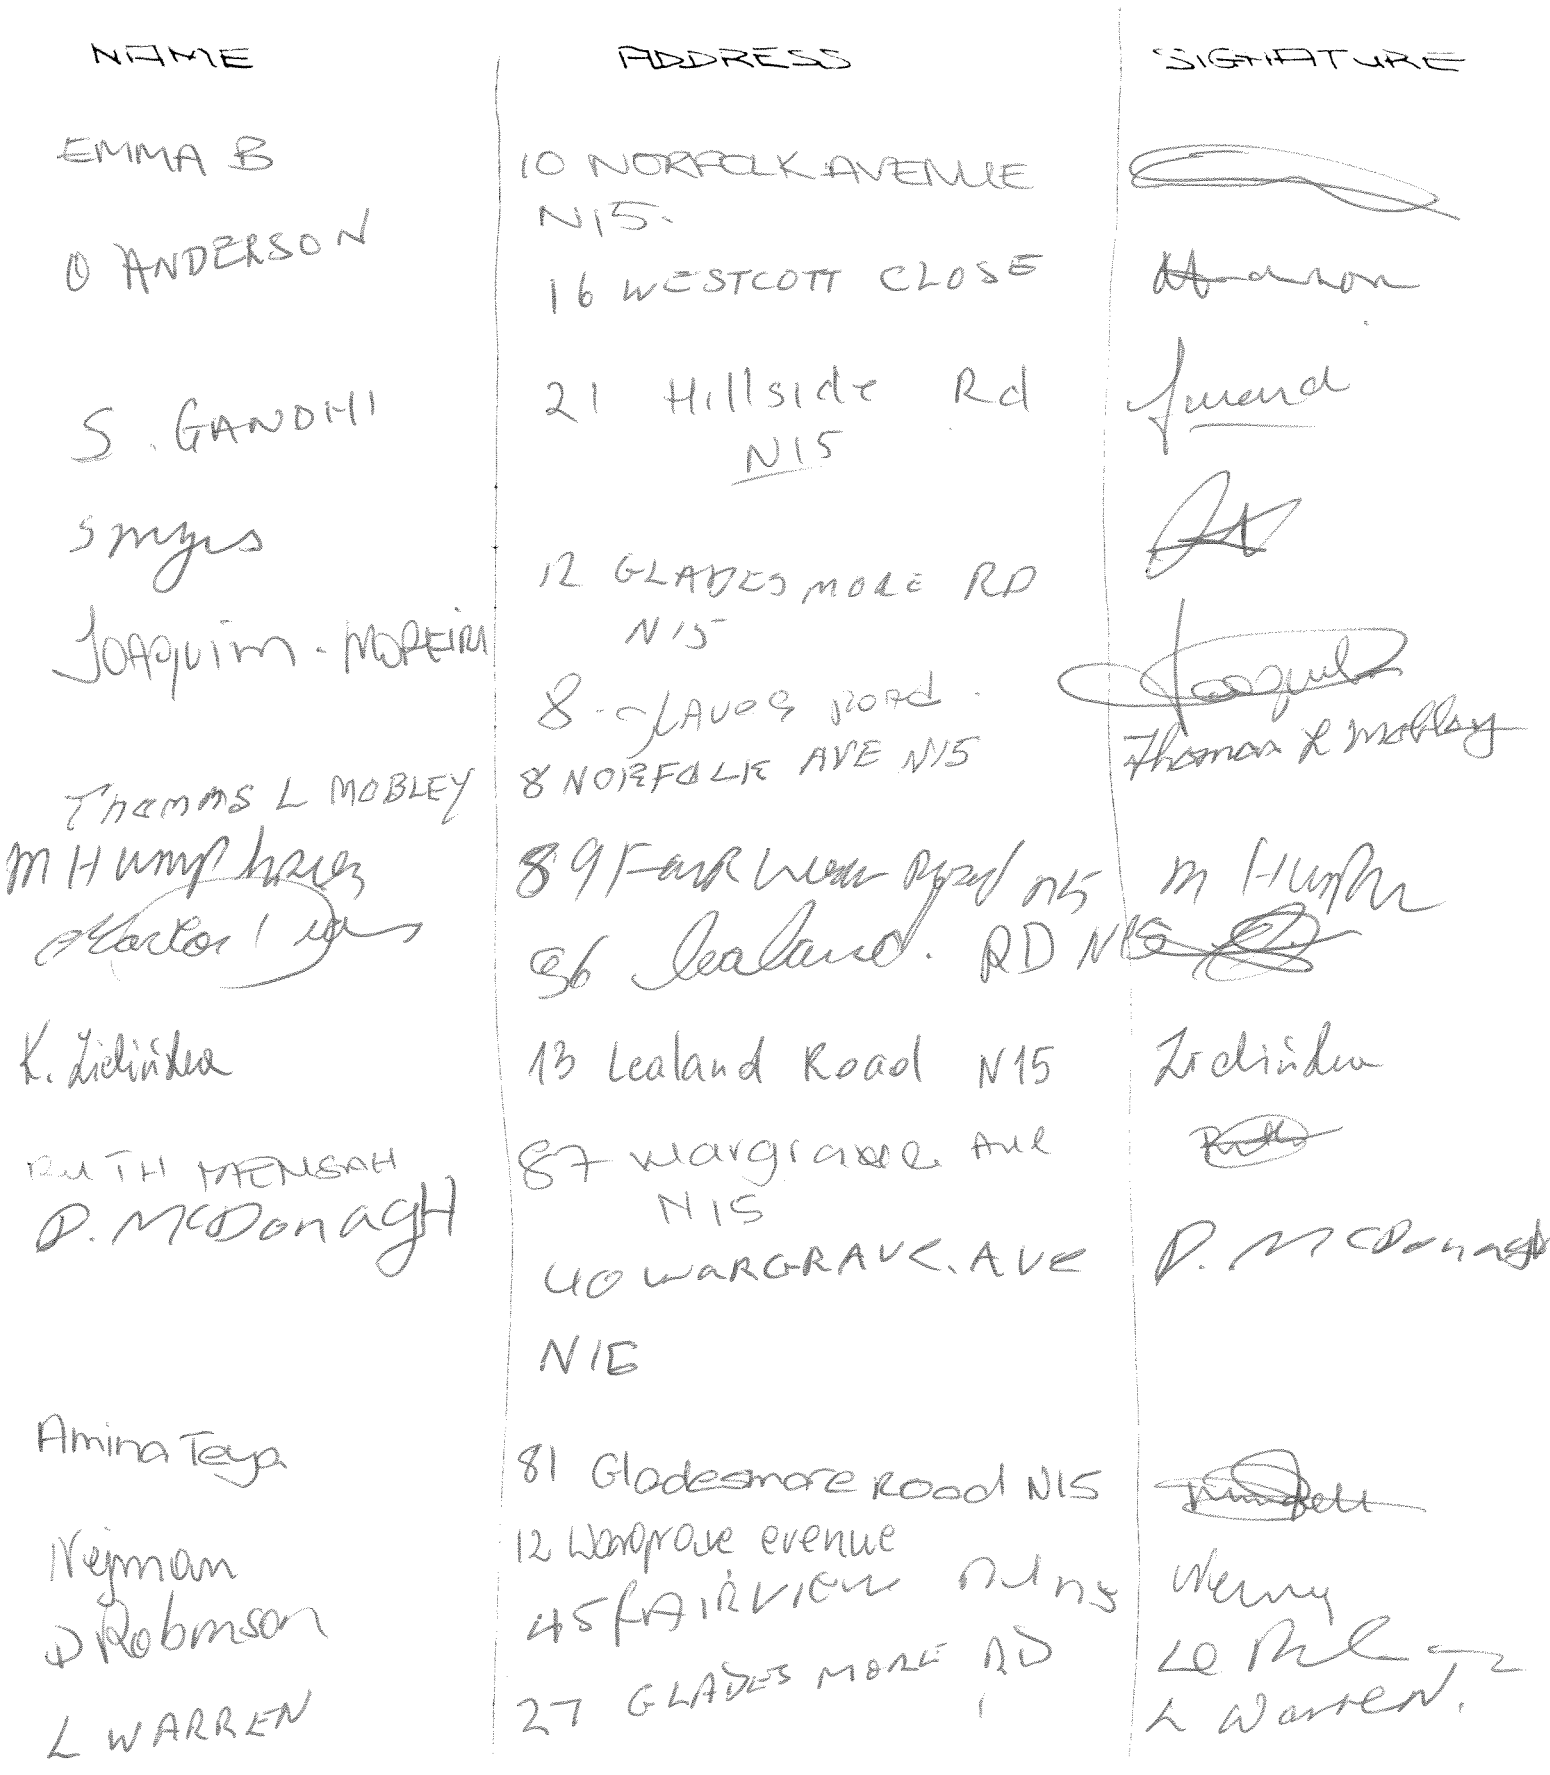 NAME ADDRESS SIGNATURE
EMMA B 10 NORFOLK AVENUE
N15.
O ANDERSON 16 WESTCOTT CLOSE
S. GANDHI 21 Hillside Rd
N15
S 12 GLADESMORE RD
N15
JOAQUIM - MOREIRA 8 - ROAD.
THOMAS L MOBLEY 8 NORFOLK AVE N15 Thomas L Mobley
M Humphries 89 Road N15 M Humph
96 Lealand. RD N15
K. 13 Lealand Road N15
RUTH MENSAH 87 Wargrave Ave Ruth
N15
D. McDonagH 40 WARGRAVE. AVE D. McDonagh
N15
Amina Teya 81 Gladesmore Road N15
Nejman 12 Wargrave evenue
D Robinson 45 FAIRVIEW Rd N15
L WARREN 27 GLADESMORE RD L Warren.